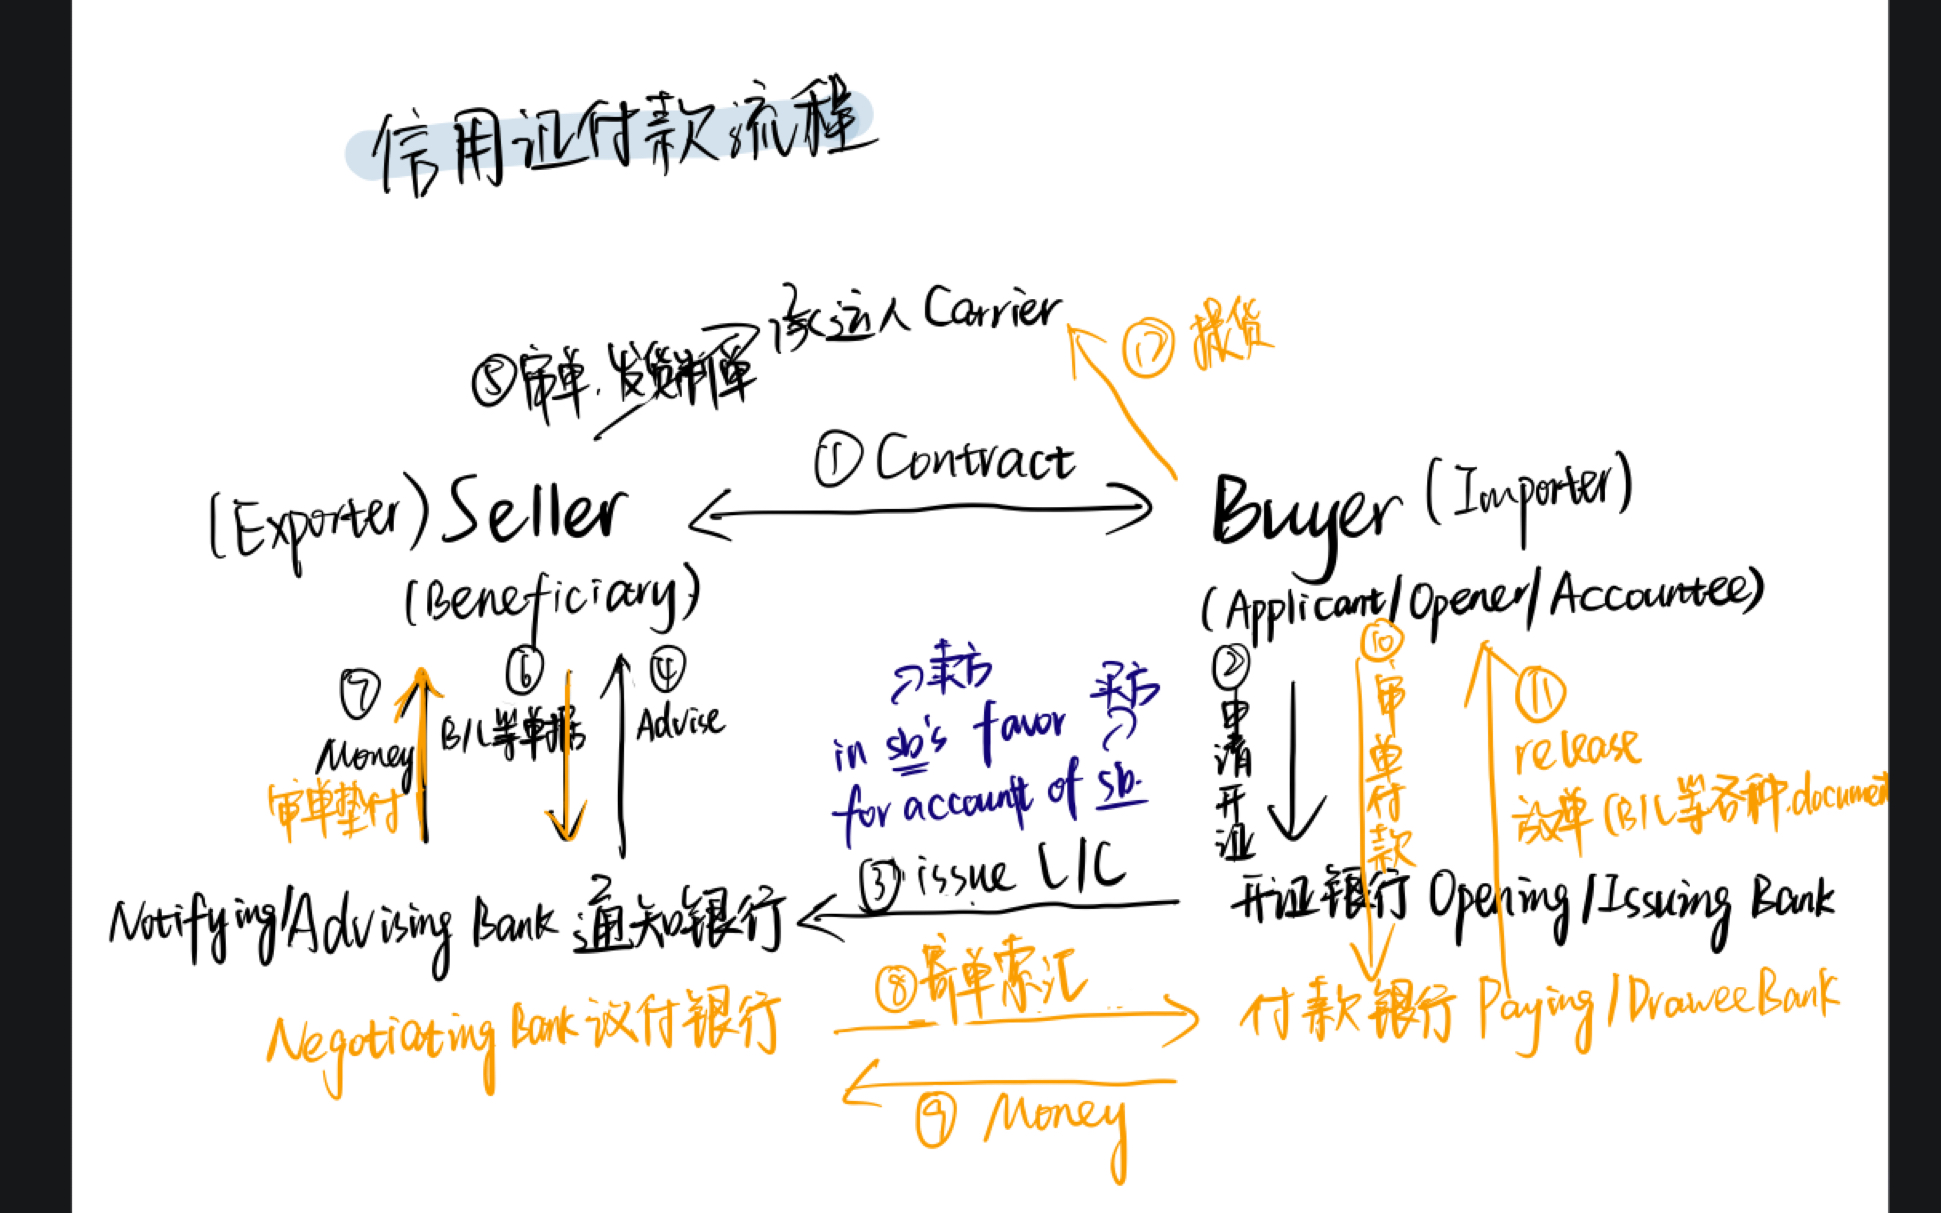 信用证付款流程
承运人 Carrier
⑫ 提货
⑤审单.发货制单
① Contract
(Exporter) Seller
Buyer (Importer)
(Beneficiary)
(Applicant/Opener/Accountee)
⑦
Money
审单垫付
⑥
B/L等单据
④
Advise
卖方
买方
in sb's favor
for account of sb.
②申请开证
⑩审单付款
⑪
release
放单(B/L等各种.document
③ issue L/C
Notifying/Advising Bank 通知银行
开证银行 Opening/Issuing Bank
⑧寄单索汇
Negotiating Bank 议付银行
付款银行 Paying/Drawee Bank
⑨ Money